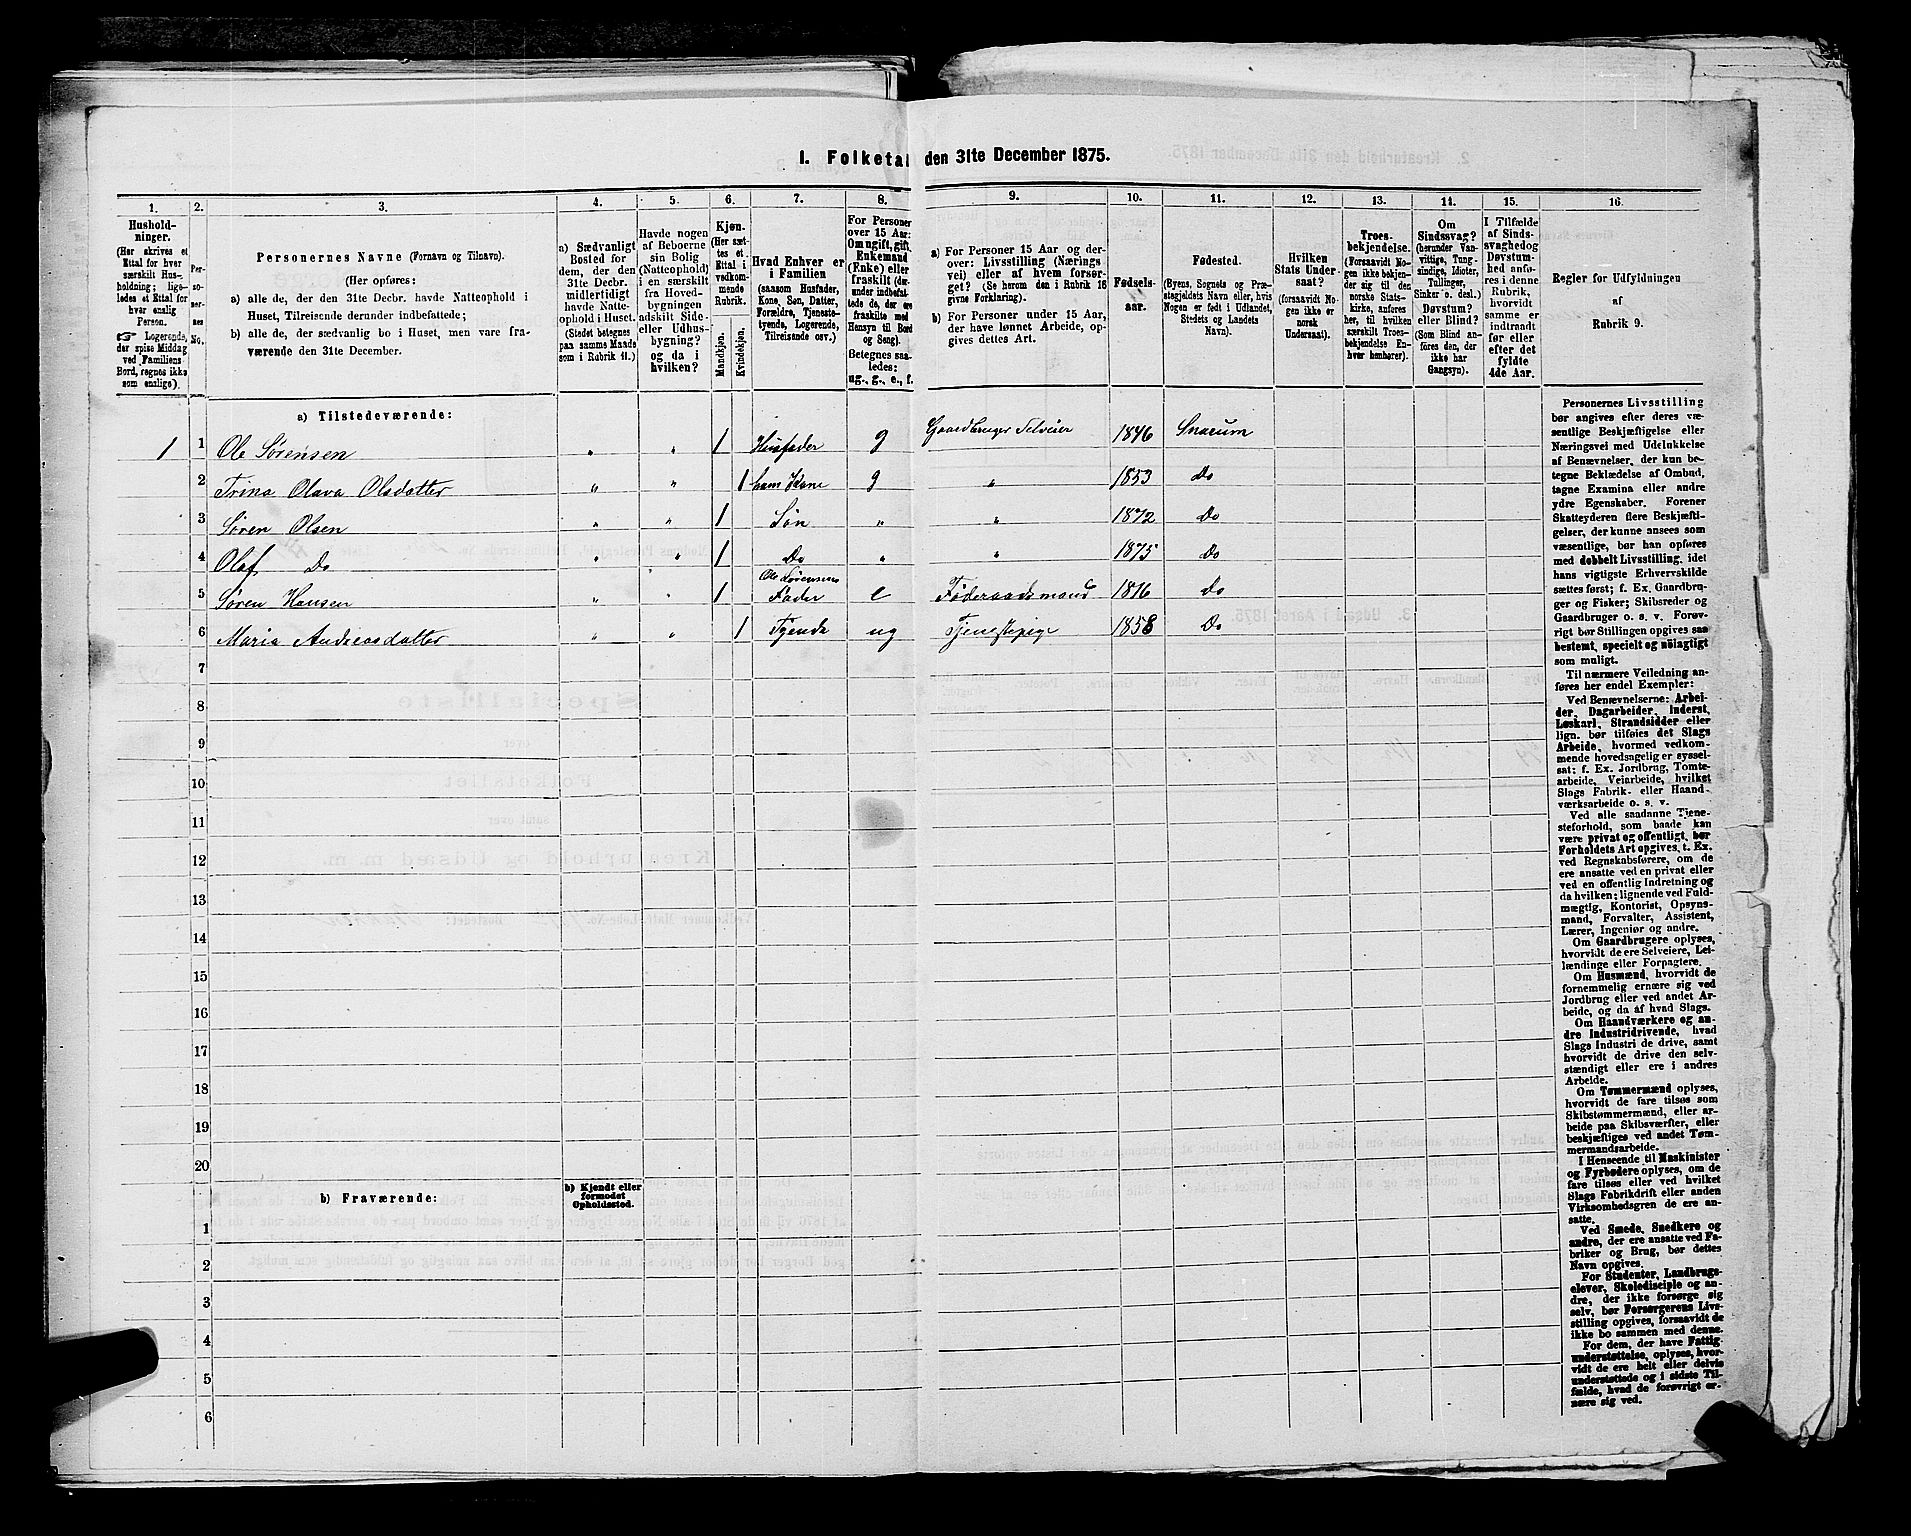 I. Folketal den 31te December 1875.
1. 2. 3. 4. 5. 6. 7. 8. 9. 10. 11. 12. 13. 14. 15. 16.
Hushold-
ninger.
(Her skrives et
Ettal for hver
særskilt Hus-
holdning; lige-
ledes et Ettal for
hver enslig
Person.
☞ Logerende,
der spise Middag
ved Familiens
Bord, regnes ikke
som enslige).
Per-
so-
ner-
nes
No.
Personernes Navne (Fornavn og Tilnavn).
(Her opføres:
a) alle de, der den 31te Decbr. havde Natteophold i
Huset, Tilreisende derunder indbefattede;
b) alle de, der sædvanlig bo i Huset, men vare fra-
værende den 31te December.
a) Sædvanligt
Bosted for
dem, der den
31te Decbr.
midlertidigt
havde Natte-
ophold i Huset.
(Stedet betegnes
paa samme Maade
som i Rubrik 11.)
Havde nogen
af Beboerne
sin Bolig
(Natteophold)
i en særskilt
fra Hoved-
bygningen
adskilt Side-
eller Udhus-
bygning?
og da i
hvilken?
Kjøn.
(Her sæt-
tes et
Ettal i
vedkom-
mende
Rubrik.
Mandkjøn.
Kvindekjøn.
Hvad Enhver er
i Familien
(saasom Husfader,
Kone, Søn, Datter,
Forældre, Tjeneste-
tyende, Logerende,
Tilreisende osv.)
For Personer
over 15 Aar:
Om ugift, gift,
Enkemand
(Enke) eller
fraskilt (der-
under indbefat-
tede de, der ere
fraskilte med
Hensyn til Bord
og Seng).
Betegnes saa-
ledes:
ug., g., e., f.
a) For Personer 15 Aar og der-
over: Livsstilling (Nærings
vei) eller af hvem forsør-
get? (Se herom den i Rubrik 16
givne Forklaring).
b) For Personer under 15 Aar,
der have lønnet Arbeide, op-
gives dettes Art.
Fødsels-
aar.
Fødested.
(Byens, Sognets og Præ-
stegjeldets Navn eller, hvis
Nogen er født i Udlandet,
Stedets og Landets
Navn).
Hvilken
Stats Under-
saat?
(forsaavidt No-
gen ikke er
norsk
Undersaat).
Troes-
bekjendelse.
(Forsaavidt No-
gen ikke bekjen-
der sig til den
norske Stats-
kirke, anføres
her, til hvilken
særskilt Troes-
bekjendelse En-
hver henhører).
Om
Sindssvag?
(herunder Van-
vittige, Tung-
sindige, Idioter,
Tullinger,
Sinker o. desl.)
Døvstum?
eller Blind?
(Som Blind an-
føres den, der
ikke har
Gangsyn).
I Tilfælde
af Sinds-
svaghed og
Døvstum-
hed anfø-
res i denne
Rubrik,
hvorvidt
samme er
indtraadt
før eller
efter det
fyldte
4de Aar.
Regler for Udfyldningen
af
Rubrik 9.
a) Tilstedeværende:
1 1 Ole Sørensen „ „ 1 Husfader g Gaardbruger Selveier 1846 Snarum
2 Trina Olava Olsdatter „ „ 1 hans Kone g „ 1853 Do
3 Søren Olsen „ „ 1 Søn „ „ 1872 Do
4 Olaf Do „ „ 1 Do „ „ 1875 Do
5 Søren Hansen „ „ 1 Ole Sørensens Fader e Føderaadsmand 1816 Do
6 Maria Andreasdatter „ „ 1 Tyende ug Tjenestepige 1858 Do
7
8
9
10
11
12
13
14
15
16
17
18
19
20
b) Fraværende:
b) Kjendt eller
formodet
Opholdssted.
1
2
3
4
5
6
Personernes Livsstilling
bør angives efter deres væ-
sentlige Beskjæftigelse eller
Næringsvei med Udelukkelse
af Benævnelser, der kun be-
tegne Beklædelse af Ombud,
tagne Examina eller andre
ydre Egenskaber. Forener
Skatteyderen flere Beskjæfti-
gelser, der kunne ansees som
væsentlige, bør han opføres
med dobbelt Livsstilling, idet
hans vigtigste Erhvervskilde
sættes først; f. Ex. Gaardbru-
ger og Fisker; Skibsreder og
Gaardbruger o. s. v. Forøv-
rigt bør Stillingen opgives saa
bestemt, specielt og nøiagtigt
som muligt.
Til nærmere Veiledning an-
føres her endel Exempler:
Ved Benævnelserne: Arbei-
der, Dagarbeider, Inderst,
Løskarl, Strandsidder eller
lign. bør tilføies det Slags
Arbeide, hvormed vedkom-
mende hovedsagelig er syssel-
sat; f. Ex. Jordbrug, Tomte-
arbeide, Veiarbeide, hvilket
Slags Fabrik- eller Haand-
værksarbeide o. s. v.
Ved alle saadanne Tjene-
steforhold, som baade kan
være privat og offentligt, bør
Forholdets Art opgives, t. Ex.
ved Regnskabsførere, om de
ere ansatte ved en privat eller
ved en offentlig Indretning og
da hvilken; lignende ved Fuld-
mægtig, Kontorist, Opsyns-
mand, Forvalter, Assistent,
Lærer, Ingeniør og andre.
Om Gaardbrugere oplyses,
hvorvidt de ere Selveiere, Lei-
lændinge eller Forpagtere.
Om Husmænd, hvorvidt de
fornemmelig ernære sig ved
Jordbrug eller ved andet Ar-
beide, og da af hvad Slags.
Om Haandværkere og an-
dre Industridrivende, hvad
Slags Industri de drive, samt
hvorvidt de drive den selv-
stændigt eller ere i andres
Arbeide.
Om Tømmermænd oplyses,
hvorvidt de fare tilsøs som
Skibstømmermænd, eller ar-
beide paa Skibsværfter, eller
beskjæftiges ved andet Tøm-
mermandsarbeide.
I Henseende til Maskinister
og Fyrbødere oplyses, om de
fare tilsøs eller ved hvilket
Slags Fabrikdrift eller anden
Virksomhedsgren de ere an-
satte.
Ved Smede, Snedkere og
andre, der ere ansatte ved Fa-
briker og Brug, bør dettes
Navn opgives.
For Studenter, Landbrugs-
elever, Skoledisciple og an-
dre, der ikke forsørge sig
selv, bør Forsørgerens Livs-
stilling opgives, forsaavidt de
ikke bo sammen med denne.
For dem, der have Fattig-
understøttelse, oplyses, hvor-
vidt de ere helt eller delvis
understøttede og i sidste Til-
fælde, hvad de forøvrigt er-
nære sig ved.